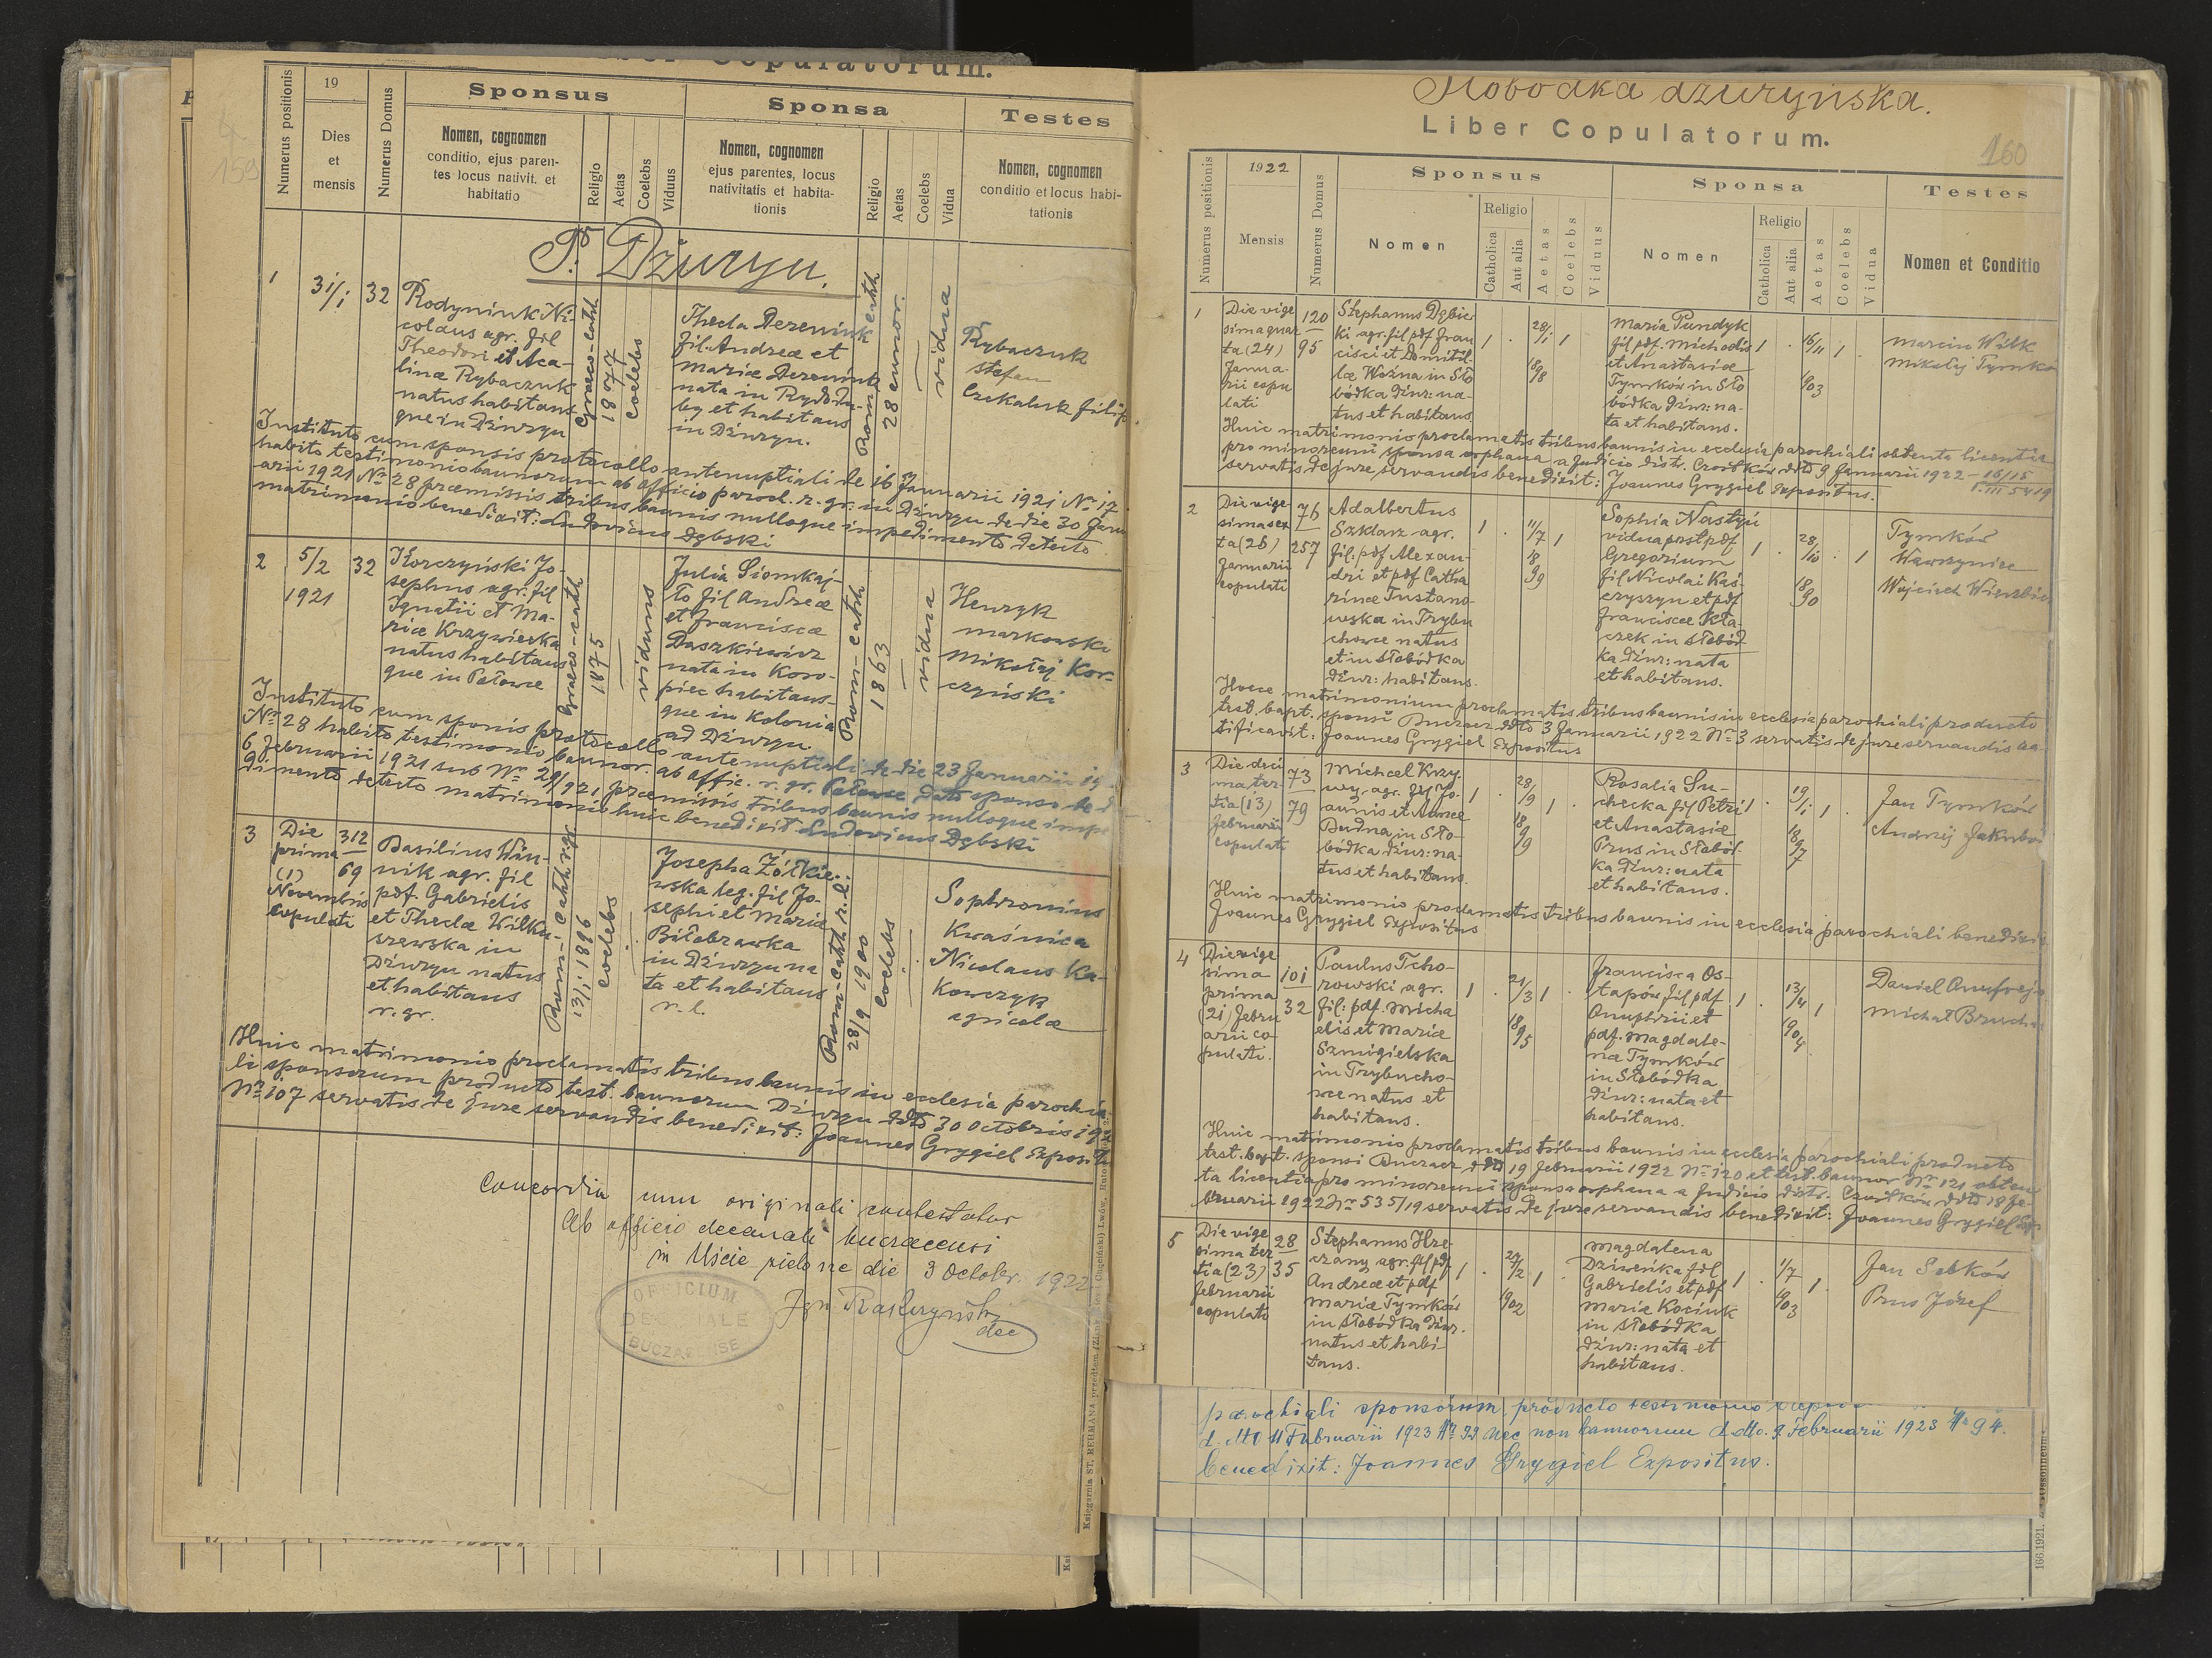 Liber Copulatorum.
159
Numerus positionis
19
Dies
et
mensis
Numerus Domus
Sponsus
Nomen, cognomen
conditio, ejus paren-
tes locus nativit. et
habitatio
Religio
Aetas
Coelebs
Viduus
Sponsa
Nomen, cognomen
ejus parentes, locus
nativitatis et habita-
tionis
Religio
Aetas
Coelebs
Vidua
Testes
Nomen, cognomen
conditio et locus habi-
tationis
Dźuryn.
1
31/1
32
Rodyniuk Ni-
colaus agr. fil
Theodori et Aca-
linae Rybaczuk
natus habitans
que in Dźuryn
Graeco-cath
1877
coelebs
Thecla Dereniuk
fil. Andreae et
Mariae Dereniuk
nata in
et habitans
in Dźuryn.
Rom. cath
28 annor.
vidua
Rybaczuk
Stefan
Czekaluk Filip
Instituto cum sponsis protocollo antenuptiali de 16 Januarii 1921 Nr 17
habito testimonio bannorum ab officio paroch. r. gr. in Dźuryn de die 30 Janu
arii 1921 Nr 28 praemissis tribus bannis nulloque impedimento detecto
matrimonio benedixit: Ludovicus Dębski
2
5/2
1921
32
Korczyński Jo-
sephus agr. fil
Ignatii et Ma-
riae Krzywieska
natus habitans
que in Petowce
Graeco-cath
1875
viduus
Julia Siomkaj-
to fil Andreae
et Franciscae
Daszkiewicz
nata in Koro-
piec habitans-
que in Kolonia
ad Dźuryn
Rom-cath
1863
vidua
Henryk
Markowski
Mikołaj Kor-
czyński
Instituto cum sponis protocollo antenuptiali de die 23 Januarii 19
Nr 28 habito testimonio bannor. ab offic. r. gr. Petowce dato sponso de d
6 Februarii 1921 sub Nr 29/921 praemissis tribus bannis nulloque impe
dimento detecto matrimonio hunc benedixit Ludovicus Dębski
3
Die
prima
(1)
Novembris
copulati
312
69
Basilius Win-
nik agr. fil
pdf. Gabrielis
et Theclae Wilku-
szewska in
Dźuryn natus
et habitans
r. gr.
Rom-cath r.gr.
13/1 1896
coelebs
Josepha Żółkie-
wska leg. fil Jo-
sephi et Maria
Biłobrawka
in Dźuryn na
ta et habitans
r. l.
Rom-cath r. l.
28/9 1900
coelebs
Sophronius
Kwaśnica
Nicolaus Ka-
kowczyk
agricolae
Huic matrimonio proclamatis tribus bannis in ecclesia parochia
li sponsorum producto test. bannorum Dźuryn ddto 30 Octobris 192
Nr 107 servatis de jure servandis benedixit: Joannes Grygiel Exposi
Concordia cum originali contestatur
Ab officio decanali buczacensi
in Uście zielone die 3 Octobr. 1922
OFFICIUM
DECANALE
BUCZACENSE
dec
Księgarnia ST. REHMANA przedtem
Słobodka dżuryńska.
Liber Copulatorum.
160
Numerus positionis
1922
Mensis
Numerus Domus
Sponsus
Nomen
Religio
Catholica
Aut alia
Aetas
Coelebs
Viduus
Sponsa
Nomen
Religio
Catholica
Aut alia
Aetas
Coelebs
Vidua
Testes
Nomen et Conditio
1
Die vige
sima quar
ta (24)
Janua-
rii copu
lati
120
95
Stephanus Dębic
ki agr. fil pdf Fran
cisci et Domitil-
lae Woźna in Sło
bódka Dźur: na-
tus et habitans
1
28/1
1898
1
Maria Pundyk
fil pdf. Michaelis
et Anastasiae
Tymków in Sło
bódka Dźur: na-
ta et habitans.
1
16/11
1903
1
Marcin Wilk
Mikołaj Tymków
Huic matrimonio proclamatis tribus bannis in ecclesia parochiali obtenta licentia
pro minorenni sponsa orphana a Judicio distr. Czortków ddto 9 Januarii 1922
servatis de jure servandis benedixit: Joannes Grygiel Expositus.
2
Die vige
sima sex
ta (26)
Januarii
copulati
76
257
Adalbertus
Szklarz agr.
fil: pdf Alexan-
dri et pdf Catha
rinae Tustano-
wska in Trybu
chowce natus
et in Słobódka
Dźur: habitans.
1
11/7
1899
1
Sophia Nastyń
vidua post pdf
Gregorium
fil Nicolai Kaś-
czyszyn et pdf
Franciscae Kła-
czek in Słobód-
ka Dźur: nata
et habitans.
1
28/10
1890
1
Tymków
Wawrzyniec
Wojciech Wierzbic
Hocce matrimonium proclamatis tribus bannis in ecclesia parochiali producto
test. bapt. sponsi Buczacz ddto 3 Januarii 1922 Nr 3 servatis de jure servandis ra-
tificavit: Joannes Grygiel Expositus
3
Die deci
ma ter
tia (13)
Februarii
copulati
73
79
Michael Krzy-
wy agr. fil Jo-
annis et Annae
Budna in Sło-
bódka Dźur: na-
tus et habitans.
1
28/9
1899
1
Rosalia Su-
checka fil Petri
et Anastasiae
Prus in Słobód-
ka Dźur: nata
et habitans.
1
19/1
1897
1
Jan Tymków
Andrzej Jakubo
Huic matrimonio proclamatis tribus bannis in ecclesia parochiali benedixit
Joannes Grygiel Expositus
4
Die vige
sima
prima
(21) Febru
arii co-
pulati.
101
32
Paulus Tcho-
rowski agr.
fil: pdf. Micha
elis et Mariae
Szmigielska
in Trybucho-
wce natus et
habitans.
1
21/3
1895
1
Francisca Os-
tapów fil pdf
Onuphrii et
pdf. Magdale-
nae Tymków
in Słobódka
Dźur: nata et
habitans.
1
13/4
1904
1
Daniel Onufrejo
Michał Brucha
Huic matrimonio proclamatis tribus bannis in ecclesia parochiali producto
test. bapt. sponsi Buczacz ddto 19 Februarii 1922 Nr 120 et test. bannor Nr 121 obten
ta licentia pro minorenni sponsa orphana a Judicio distr. Czortków ddto 18 Fe-
bruarii 1922 Nr 535/19 servatis de jure servandis benedixit: Joannes Grygiel Exp.
5
Die vige
sima ter
tia (23)
Februarii
copulati
28
35
Stephanus Hre-
czany agr. fil pdf
Andreae et pdf
Mariae Tymków
in Słobódka Dźur.
natus et habi
tans.
1
27/2
1902
1
Magdalena
Dziwenka fil
Gabrielis et pdf
Mariae Kociuk
in Słobódka
Dźur: nata et
habitans.
1
1/7
1903
1
Jan Sabków
Prus Józef
parochiali sponsorum, producto testimonio
d. dto 11 Februarii 1923 Nr 92 nec non bannorum d.dto. 9 Februarii 1923 Nr 94.
benedixit: Joannes Grygiel Expositus.
166.1921.